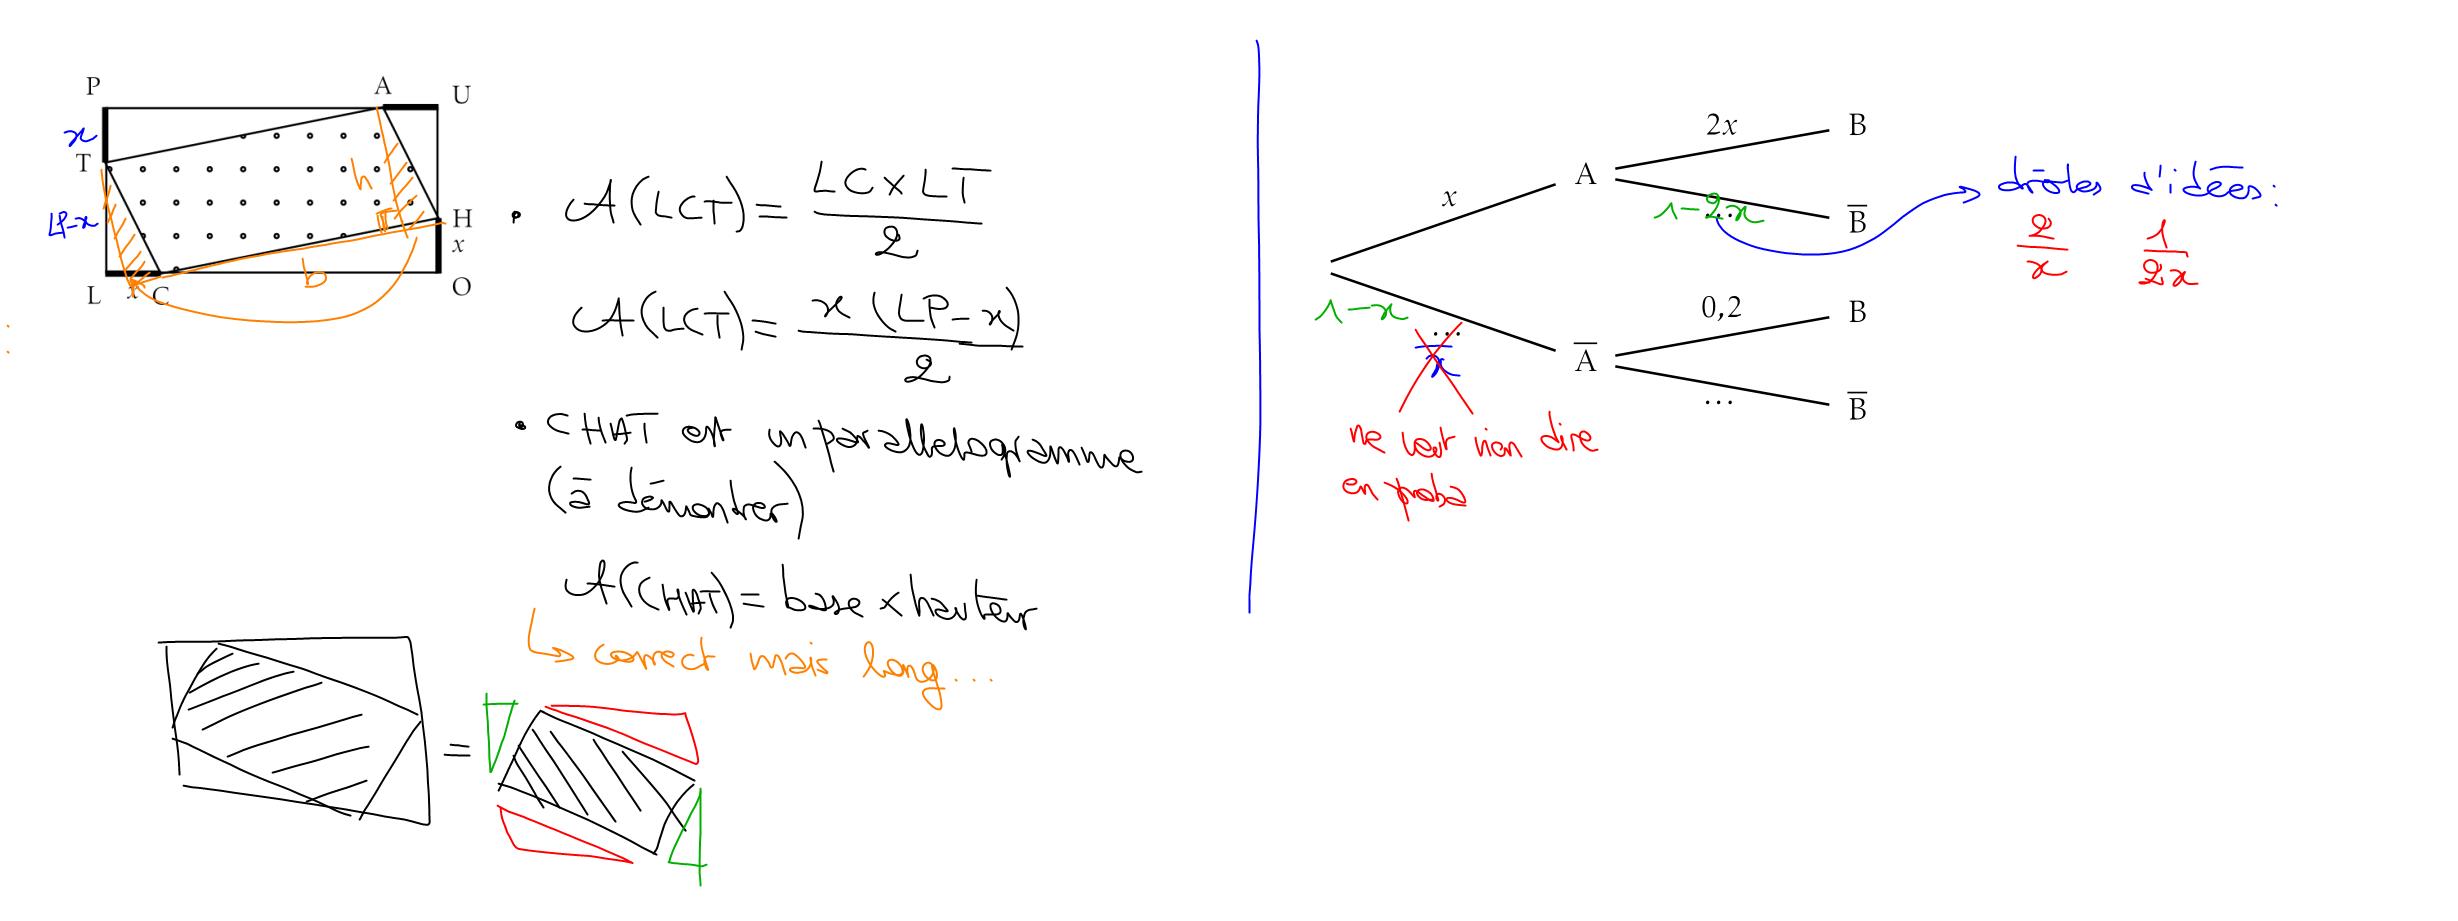 P
A
U
x
T
h
LP-x
H
x
b
L
x
C
O
• A(LCT) = LC×LT / 2
A(LCT) = x (LP-x) / 2
• CHAT est un parallelogramme
(à démontrer)
A(CHAT) = base × hauteur
↳ correct mais long...
=
x
A
2x
B
1-2x
...
B̅
drôles d'idées:
2/x 1/2x
1-x
...
x̅
ne veut rien dire
en proba
A̅
0,2
B
...
B̅